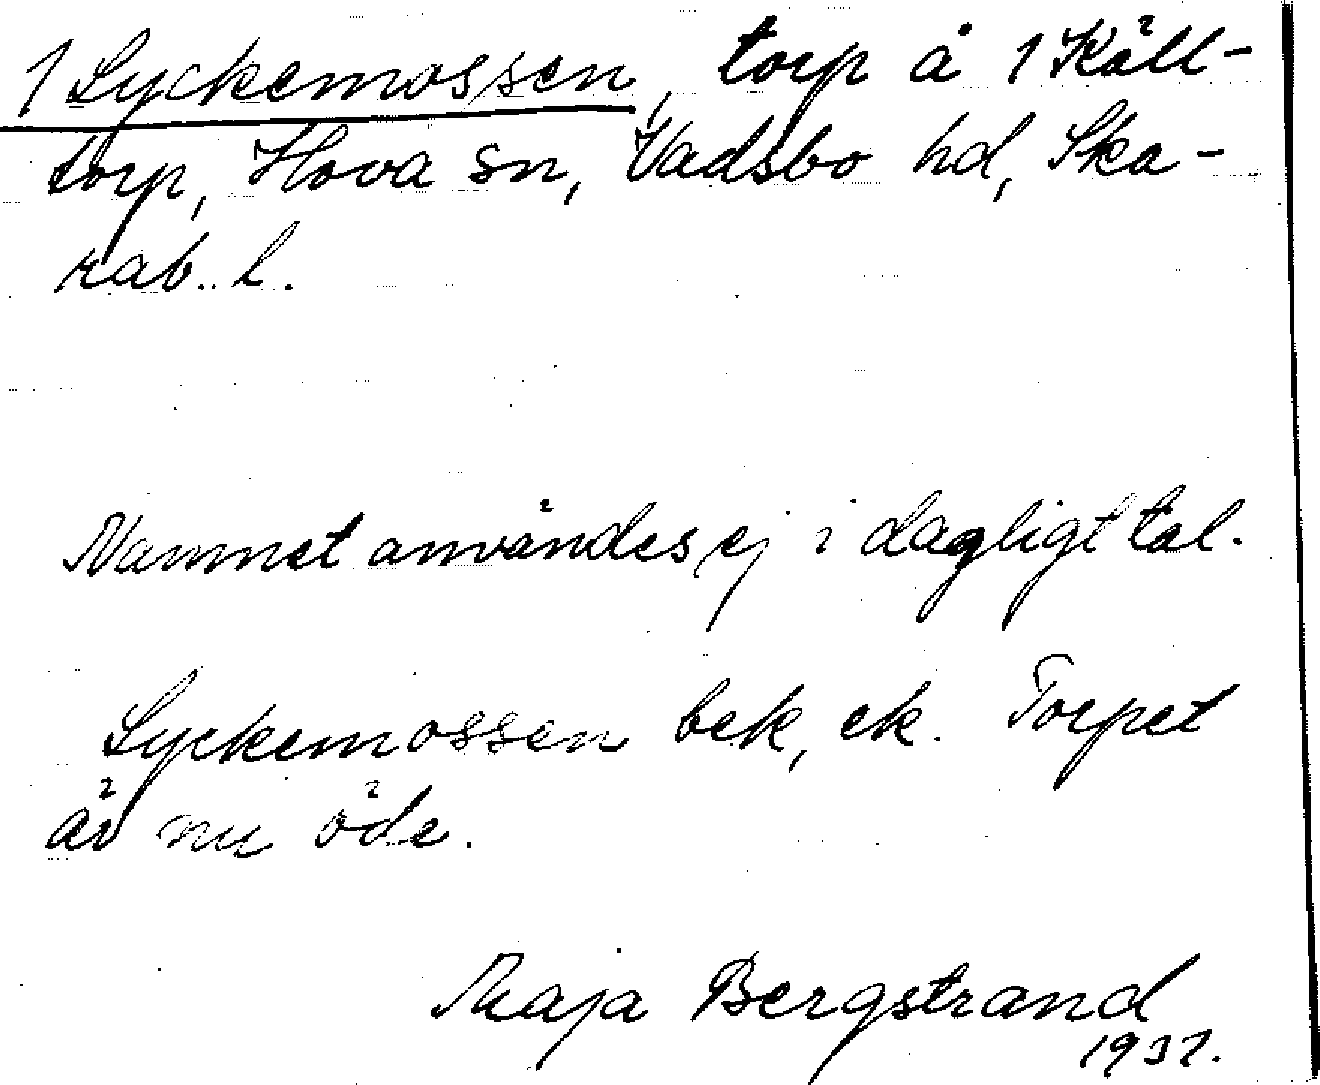 1 Lyckemossen, torp å 1 Käll-
torp, Hova sn, Vadsbo hd, Ska-
rab. l.
Namnet användes ej i dagligt tal.
Lyckemossen bek, ek. Torpet
är nu öde.
Maja Bergstrand
1937.